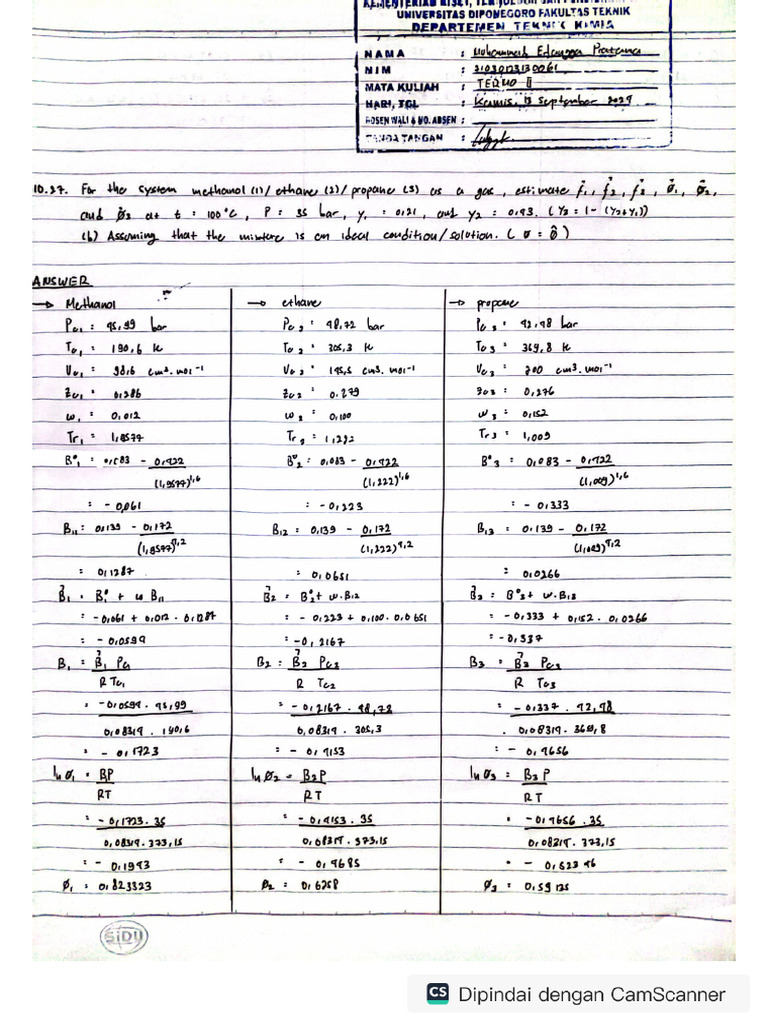 KEMENTERIAN RISET, TEKNOLOGI DAN
UNIVERSITAS DIPONEGORO FAKULTAS TEKNIK
DEPARTEMEN TEKNIK KIMIA
NAMA : Mohammad Erlangga Pratama
NIM : 21030123130061
MATA KULIAH : TERMO II
HARI, TGL : Kamis, 13 September 2024
DOSEN WALI & NO. ABSEN :
TANDA TANGAN :
10.27. For the system methanol (1) / ethane (2) / propane (3) as a gas, estimate f̂₁, f̂₂, f̂₃, ø̂₁, ø̂₂,
and ø̂₃ at t = 100°C, P = 35 bar, y₁ = 0,21, and y₂ = 0,43. (y₃ = 1 - (y₂+y₁))
(b) Assuming that the mixture is an ideal condition/solution. (ø = ø̂)
ANSWER
→ Methanol
Pc₁ : 45,99 bar
Tc₁ : 190,6 K
Vc₁ : 98,6 cm³.mol⁻¹
Zc₁ : 0,286
ω₁ : 0,012
Tr₁ : 1,9577
B°₁ : 0,083 - 0,422
(1,9577)¹,⁶
: - 0,061
B₁₁ : 0,139 - 0,172
(1,9577)⁴,²
: 0,1287
B̂₁ : B°₁ + ω B₁₁
: - 0,061 + 0,012 . 0,1287
: - 0,0594
B₁ : B̂₁ Pc₁
R Tc₁
: - 0,0594 . 45,99
0,08314 . 190,6
: - 0,1723
ln ø₁ : BP
RT
: - 0,1723 . 35
0,08314 . 373,15
: - 0,1943
ø₁ : 0,823323
→ ethane
Pc₂ : 48,72 bar
Tc₂ : 305,3 K
Vc₂ : 145,5 cm³.mol⁻¹
Zc₂ : 0,279
ω₂ : 0,100
Tr₂ : 1,222
B°₂ : 0,083 - 0,422
(1,222)¹,⁶
: - 0,223
B₁₂ : 0,139 - 0,172
(1,222)⁴,²
: 0,0651
B̂₂ : B°₂ + ω.B₁₂
: - 0,223 + 0,100 . 0,0651
: - 0,2167
B₂ : B̂₂ Pc₂
R Tc₂
: - 0,2167 . 48,72
0,08314 . 305,3
: - 0,4153
ln ø₂ = B₂P
RT
: - 0,4153 . 35
0,08314 . 373,15
: - 0,4685
ø₂ : 0,6258
→ propane
Pc₃ : 42,48 bar
Tc₃ : 369,8 K
Vc₃ : 200 cm³.mol⁻¹
Zc₃ : 0,276
ω₃ : 0,152
Tr₃ : 1,009
B°₃ : 0,083 - 0,422
(1,009)¹,⁶
: - 0,333
B₁₃ : 0,139 - 0,172
(1,009)⁴,²
: 0,0266
B̂₃ : B°₃ + ω.B₁₃
: - 0,333 + 0,152 . 0,0266
: - 0,337
B₃ : B̂₃ Pc₃
R Tc₃
: - 0,337 . 42,48
0,08314 . 369,8
: - 0,4656
ln ø₃ : B₃P
RT
: - 0,4656 . 35
0,08314 . 373,15
: - 0,52346
ø₃ : 0,59125
SiDU
CS Dipindai dengan CamScanner